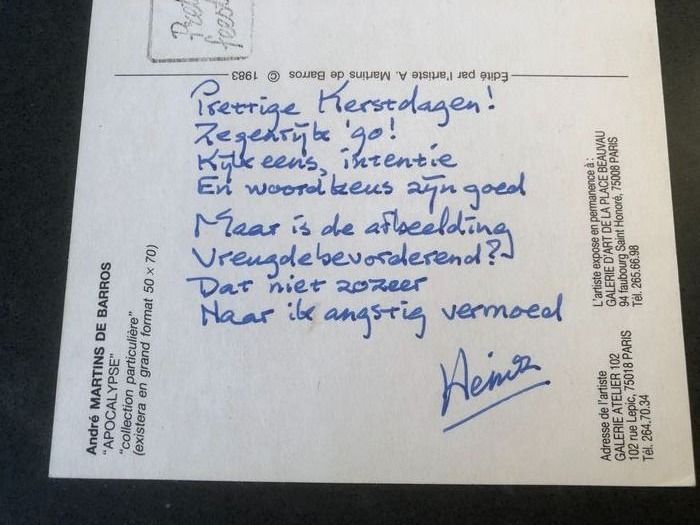 Prettige Kerstdagen!
Zegenrijk '90!
Kijk eens, intentie
En woordkeus zijn goed
Maar is de afbeelding
Vreugdebevorderend?
Dat niet zozeer
Naar ik angstig vermoed
Heinz
Edité par l'artiste A. Martins de Barros © 1983
André MARTINS DE BARROS
"APOCALYPSE"
"collection particulière"
(existera en grand format 50 x 70)
L'artiste expose en permanence à :
GALERIE D'ART DE LA PLACE BEAUVAU
94 faubourg Saint Honoré, 75008 PARIS
Tél. 265.66.98
Adresse de l'artiste
GALERIE ATELIER 102
102 rue Lepic, 75018 PARIS
Tél. 264.70.34